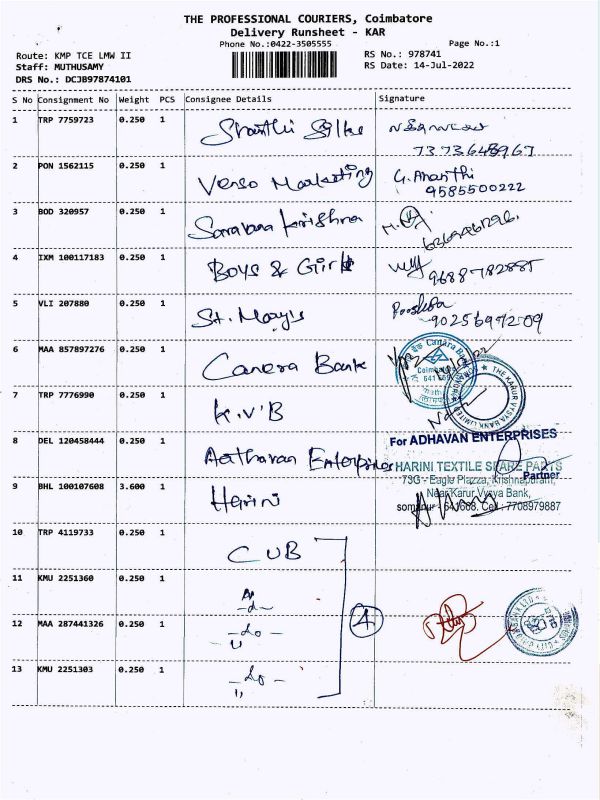 THE PROFESSIONAL COURIERS, Coimbatore
Delivery Runsheet - KAR
Phone No.:0422-3505555
Page No.:1
Route: KMP TCE LMW II
RS No.: 978741
Staff: MUTHUSAMY
RS Date: 14-Jul-2022
DRS No.: DCJB97874101
S No Consignment No Weight PCS Consignee Details Signature
1 TRP 7759723 0.250 1 Shanthi Silks
7373648967
2 PON 1562115 0.250 1 Verso Marketing G. Ananthi
9585500222
3 BOD 320957 0.250 1 Saravana Krishna
4 IXM 100117183 0.250 1 Boys & Girls 9688782885
5 VLI 207880 0.250 1 St. Mary's
9025697209
6 MAA 857897276 0.250 1 Canara Bank
Canara Bank
Coimbatore
7 TRP 7776990 0.250 1 K.V.B
THE KARUR VYSYA BANK LIMITED
8 DEL 120458444 0.250 1 Aathavan Enterprises
For ADHAVAN ENTERPRISES
Partner
9 BHL 100107608 3.600 1 Harini
HARINI TEXTILE SPARE PARTS
73G - Eagle Plazza, Krishnapuram,
Near Karur Vysya Bank,
somanur - 641668. Cell : 7708979887
10 TRP 4119733 0.250 1 CUB
11 KMU 2251360 0.250 1 -do-
12 MAA 287441326 0.250 1 -do-
4
13 KMU 2251303 0.250 1 -do-